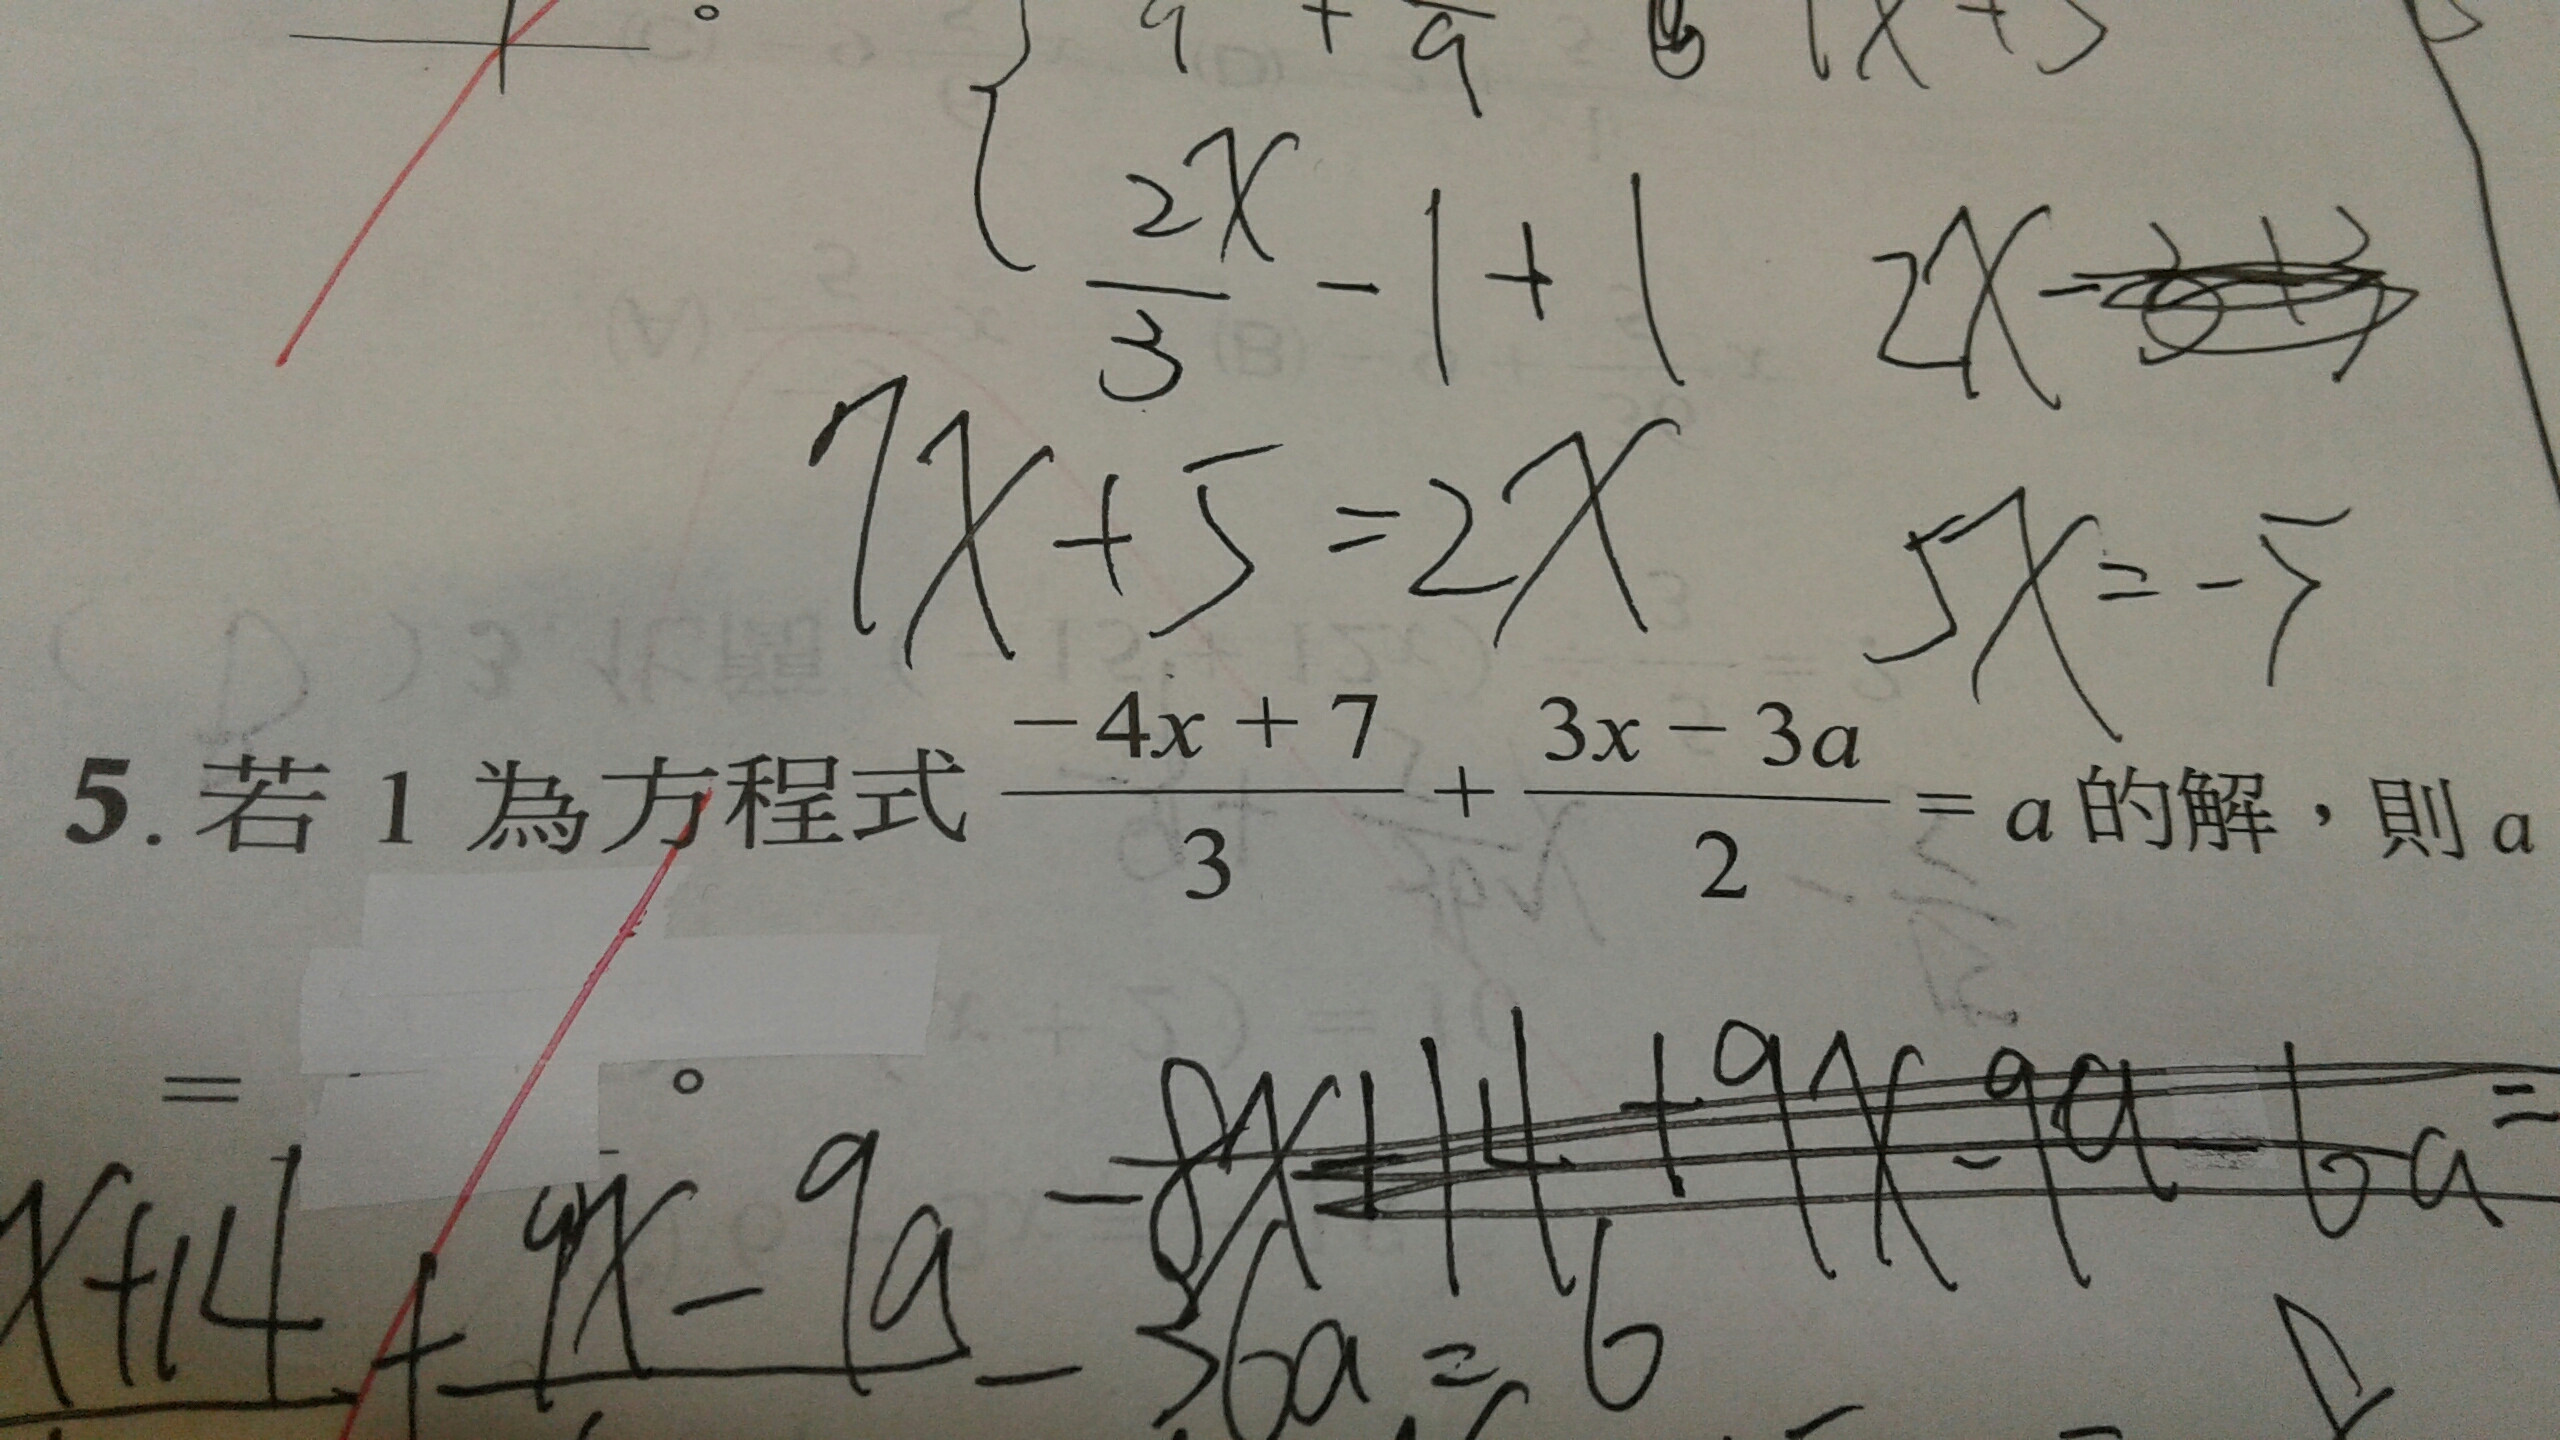 2x/3 - 1 + 1 2x -
7x + 5 = 2x 5x = -5
5. 若 1 為方程式 (-4x + 7)/3 + (3x - 3a)/2 = a 的解，則 a
= 。
-8x + 14 + 9x - 9a - 6a =
x + 14 + 9x - 9a - 36a = 6